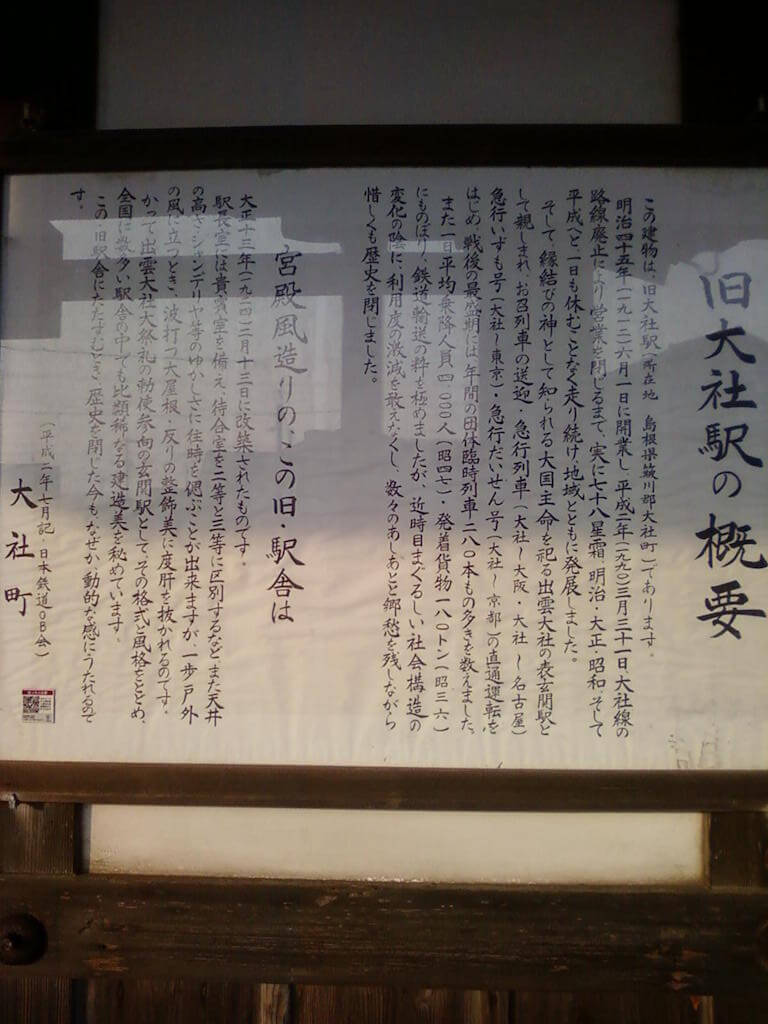 旧大社駅の概要
この建物は、旧大社駅(所在地 島根県簸川郡大社町)であります。
明治四十五年(一九一二)六月一日に開業し、平成二年(一九九〇)三月三十一日大社線の
路線廃止により営業を閉じるまで、実に七十八星霜、明治・大正・昭和そして
平成へと一日も休むことなく走り続け、地域とともに発展しました。
そして、縁結びの神として知られる大国主命を祀る出雲大社の表玄関駅と
して親しまれ、お召列車の送迎・急行列車(大社〜大阪・大社〜名古屋)
急行いずも号(大社〜東京)・急行だいせん号(大社〜京都)の直通運転を
はじめ、戦後の最盛期には、年間の団体臨時列車二八〇本もの多きを数えました。
また一日平均乗降人員四、〇〇〇人(昭四七)・発着貨物一八〇トン(昭三六)
にものぼり、鉄道輸送の粋を極めましたが、近時目まぐるしい社会構造の
変化の陰に、利用度の激減を敢えなくし、数々のあしあとと郷愁を残しながら
惜しくも歴史を閉じました。
宮殿風造りの、この旧・駅舎は
大正十三年(一九二四)二月十三日に改築されたものです。
駅長室には貴賓室を備え、待合室を二等と三等に区別するなど、また天井
の高さ・シャンデリヤ等のゆかしさに往時を偲ぶことが出来ますが、一歩戸外
の風に立つとき、波打つ大屋根・反りの整飾美に度肝を抜かれるのです。
かつて出雲大社大祭礼の勅使参向の玄関駅として、その格式と風格をとどめ、
全国に数多い駅舎の中でも比類稀なる建造美を秘めています。
この・旧駅舎にたたずむとき、歴史を閉じた今もなぜか、動的な感にうたれるので
す。
(平成二年七月記 日本鉄道OB会)
大社町